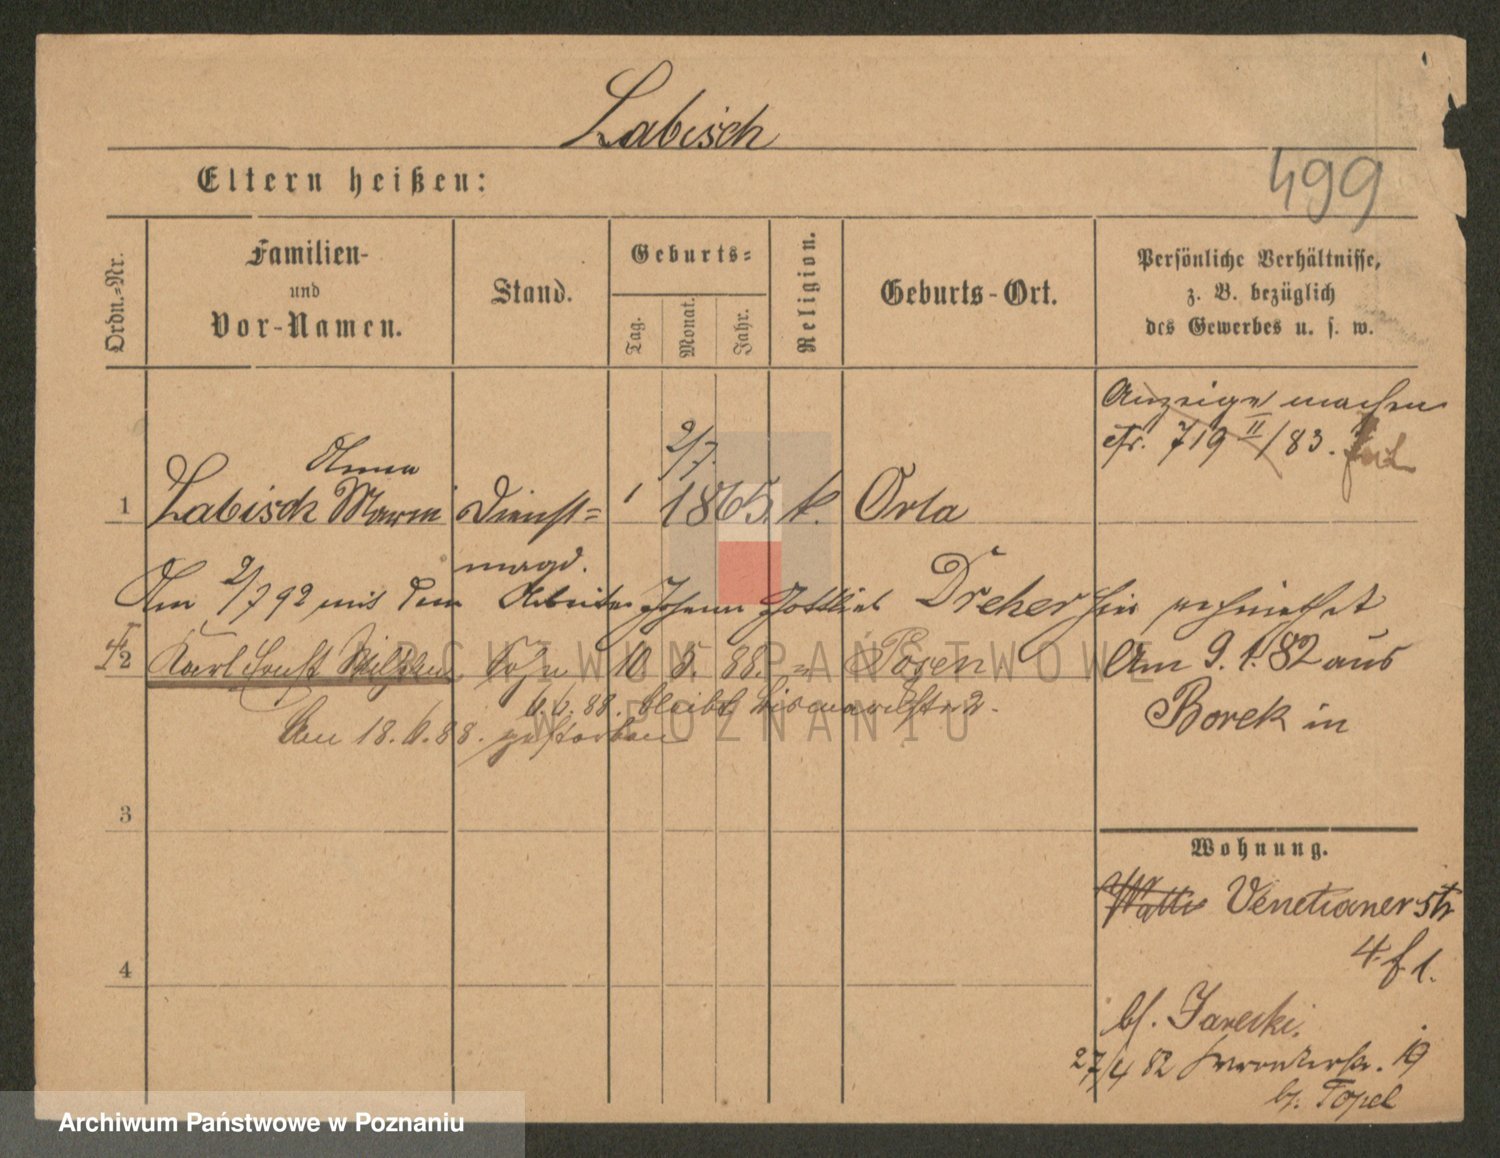 Labisch
Eltern heißen:
499
Ordn.-Nr.
Familien-
und
Vor-Namen.
Stand.
Geburts-
Tag.
Monat.
Jahr.
Religion.
Geburts-Ort.
Persönliche Verhältnisse,
z. B. bezüglich
des Gewerbes u. s. w.
Anzeige machen
cfr. 719 II/83.
Anna
2/7.
1 Labisch Marie Dienst= 1865. k. Orla
magd.
Am 2/7 92 mit dem Arbeiter Johann Gottlieb Dreher hier verheirathet
2 Karl Ernst Sohn 10 5. 88. = Posen
Am 9.1.82 aus
Borek in
6.6.88. bleibt Bismarckstr 2.
Am 18.6.88. gestorben
3
Wohnung.
Venetianerstr
4. f. 1.
4
bf. Jareski.
27/4 82 19
bz. Topel
ARCHIWUM PAŃSTWOWE
W POZNANIU
Archiwum Państwowe w Poznaniu